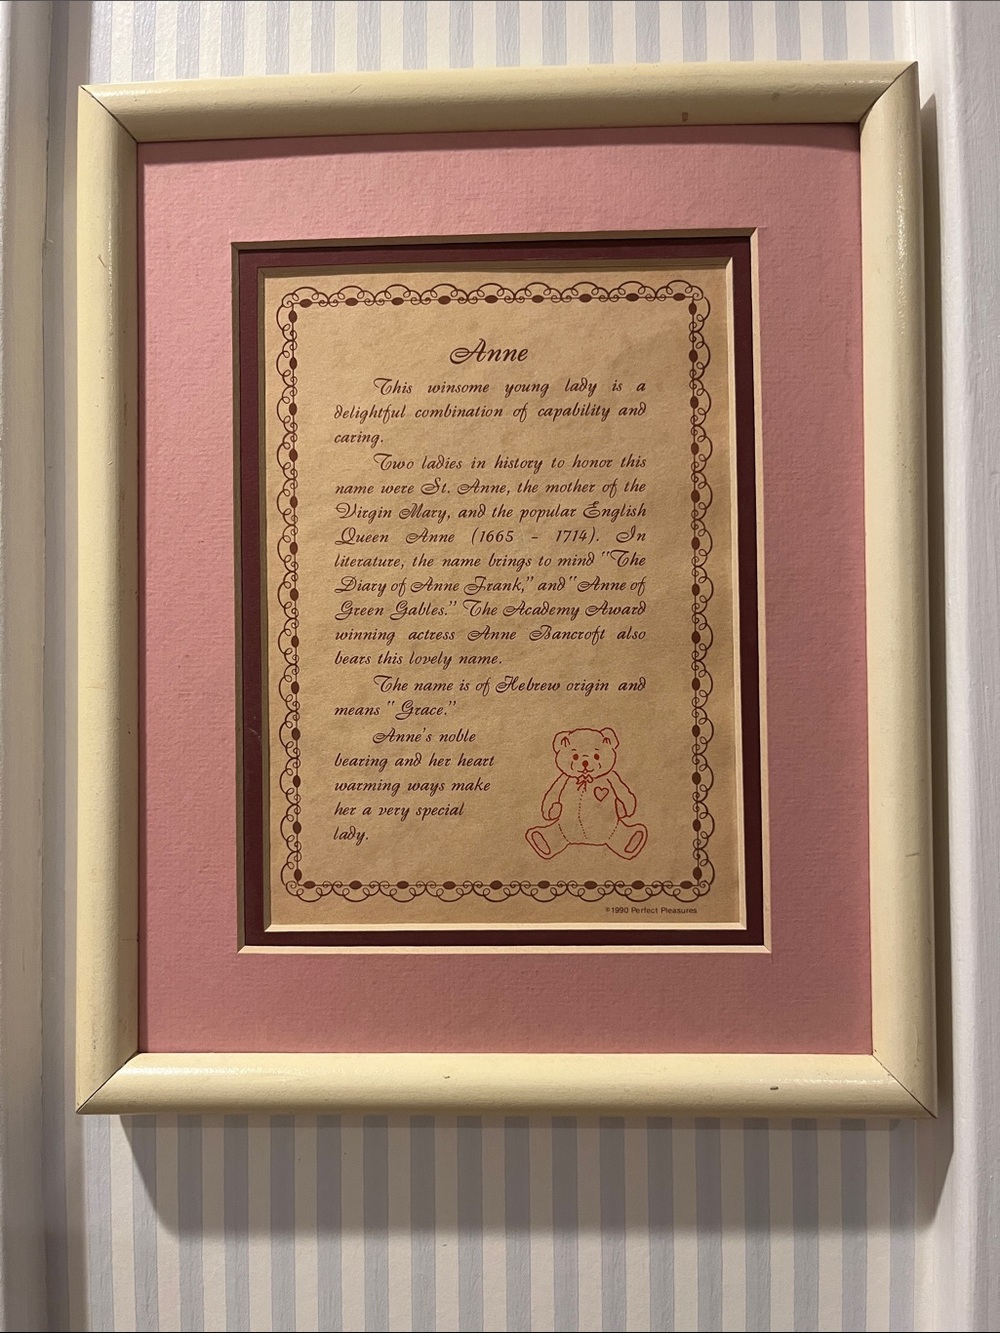 Anne
This winsome young lady is a
delightful combination of capability and
caring.
Two ladies in history to honor this
name were St. Anne, the mother of the
Virgin Mary, and the popular English
Queen Anne (1665 - 1714). In
literature, the name brings to mind "The
Diary of Anne Frank," and "Anne of
Green Gables." The Academy Award
winning actress Anne Bancroft also
bears this lovely name.
The name is of Hebrew origin and
means " Grace."
Anne's noble
bearing and her heart
warming ways make
her a very special
lady.
©1990 Perfect Pleasures